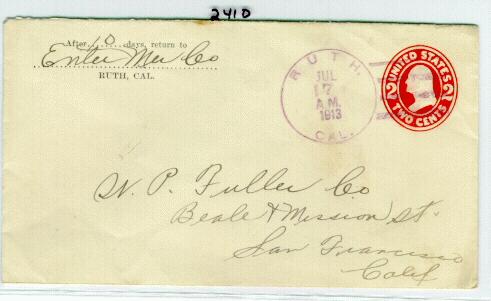 2410
After 10 days, return to
Enter Mer Co
RUTH, CAL.
RUTH,
JUL
17
A.M.
1913
CAL.
UNITED STATES
2 2
TWO CENTS
W. P. Fuller Co
Beale & Mission St.
San Francisco
Calif